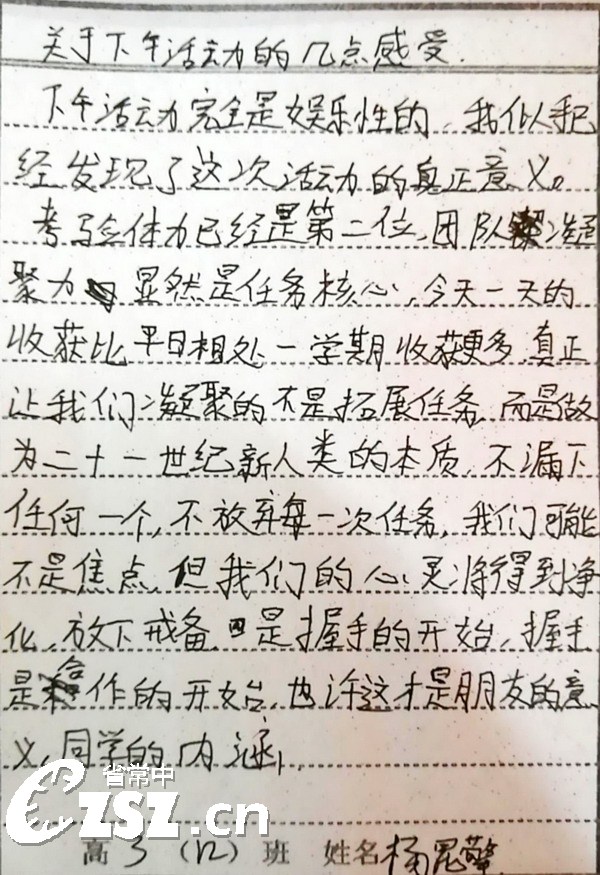 关于下午活动的几点感受.
下午活动完全是娱乐性的,我似乎已
经发现了这次活动的真正意义。
考验体力已经是第二位,团队凝
聚力显然是任务核心,今天一天的
收获比平日相处一学期收获更多,真正
让我们凝聚的不是拓展任务,而是做
为二十一世纪新人类的本质,不漏下
任何一个,不放弃每一次任务,我们可能
不是焦点,但我们的心灵将得到净
化,放下戒备是握手的开始,握手
是合作的开始,也许这才是朋友的意
义,同学的内涵,
省常中
CZSZ.cn
高3(12)班 姓名杨昆